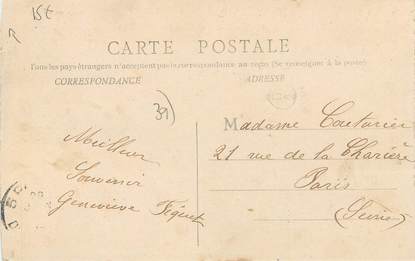 15t
P
CARTE POSTALE
Tous les pays étrangers n'acceptent pas la correspondance au recto (Se renseigner à la poste)
CORRESPONDANCE
ADRESSE
39)
Meilleur
Souvenir
Geneviève
Madame Couturier
21 rue de la Charière
Paris
(Seine)